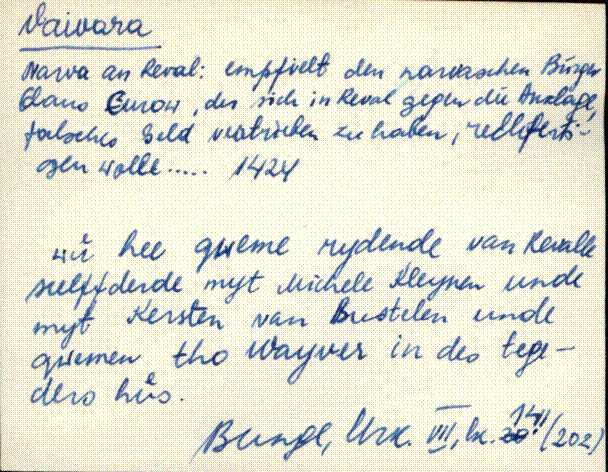 Vaivara
Narva an Reval: empfielt den narvaschen Bürger
Claus Curow, der sich in Reval gegen die Anklage,
falsches Geld vertrieben zu haben, rechtferti-
gen wolle..... 1424
wii hee qweme rydende van Revalle
sulffderde myt Michele Kleynen unde
myt Kersten van Bustelen unde
qwemen tho Wayver in des tege-
ders hůs.
Bunge, Urk. VII, lk. 141 (202)